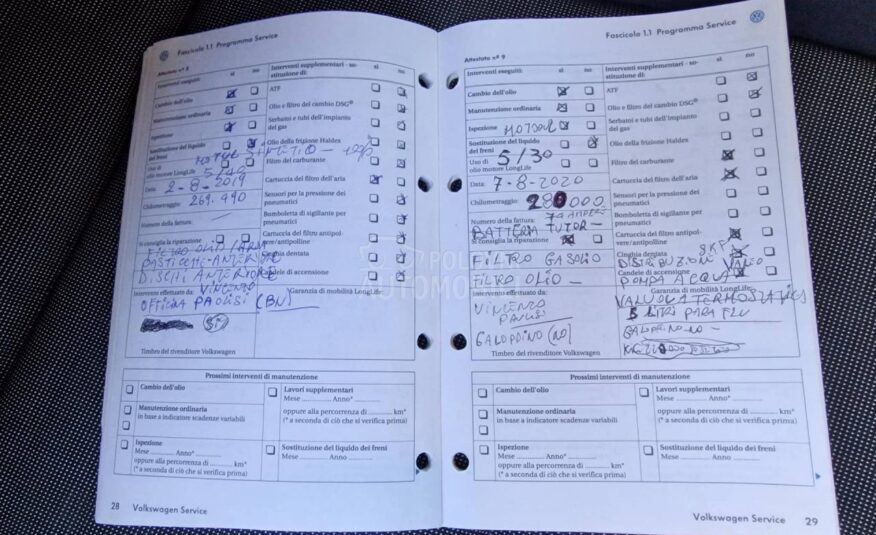 Fascicolo 1.1 Programma Service
Attestato n° 8
Interventi eseguiti: sì no
Cambio dell'olio
Manutenzione ordinaria
Ispezione
Sostituzione del liquido
dei freni
Uso di
olio motore LongLife
Data: 2-8-2019
Chilometraggio: 269.490
Numero della fattura:
Si consiglia la riparazione
FILTRO OLIO/ARIA
PASTICCHE ANTERIORE
DISCHI ANTERIORE
Intervento effettuato da: VINCENZO
OFFICINA PAOLISI (BN)
SI
Timbro del rivenditore Volkswagen
Interventi supplementari - so-
stituzione di: sì no
ATF
Olio e filtro del cambio DSG®
Serbatoi e tubi dell'impianto
del gas
Olio della frizione Haldex
Filtro del carburante
Cartuccia del filtro dell'aria
Sensori per la pressione dei
pneumatici
Bomboletta di sigillante per
pneumatici
Cartuccia del filtro antipol-
vere/antipolline
Cinghia dentata
Candele di accensione
Garanzia di mobilità LongLife:
Prossimi interventi di manutenzione
Cambio dell'olio
Manutenzione ordinaria
in base a indicatore scadenze variabili
Ispezione
Mese ............. Anno*........
oppure alla percorrenza di ......... km*
(* a seconda di ciò che si verifica prima)
Lavori supplementari
Mese ............. Anno* .........
oppure alla percorrenza di ......... km*
(* a seconda di ciò che si verifica prima)
Sostituzione del liquido dei freni
Mese ............. Anno ..........
28 Volkswagen Service
Fascicolo 1.1 Programma Service
Attestato n° 9
Interventi eseguiti: sì no
Cambio dell'olio
Manutenzione ordinaria
Ispezione
Sostituzione del liquido
dei freni
Uso di 5/30
olio motore LongLife
Data: 7-8-2020
Chilometraggio: 280000
Numero della fattura:
BATTERIA TUTOR-
Si consiglia la riparazione
FILTRO GASOLIO
FILTRO OLIO -
Intervento effettuato da:
VINCENZO
PAOLISI
Timbro del rivenditore Volkswagen
Interventi supplementari - so-
stituzione di: sì no
ATF
Olio e filtro del cambio DSG®
Serbatoi e tubi dell'impianto
del gas
Olio della frizione Haldex
Filtro del carburante
Cartuccia del filtro dell'aria
Sensori per la pressione dei
pneumatici
Bomboletta di sigillante per
pneumatici
Cartuccia del filtro antipol-
vere/antipolline
Cinghia dentata
Candele di accensione
POMPA ACQUA
Garanzia di mobilità LongLife:
5 LITRI PARAFLU
Prossimi interventi di manutenzione
Cambio dell'olio
Manutenzione ordinaria
in base a indicatore scadenze variabili
Ispezione
Mese ............. Anno*........
oppure alla percorrenza di ......... km*
(* a seconda di ciò che si verifica prima)
Lavori supplementari
Mese ............. Anno* .........
oppure alla percorrenza di ......... km*
(* a seconda di ciò che si verifica prima)
Sostituzione del liquido dei freni
Mese ............. Anno ..........
Volkswagen Service 29